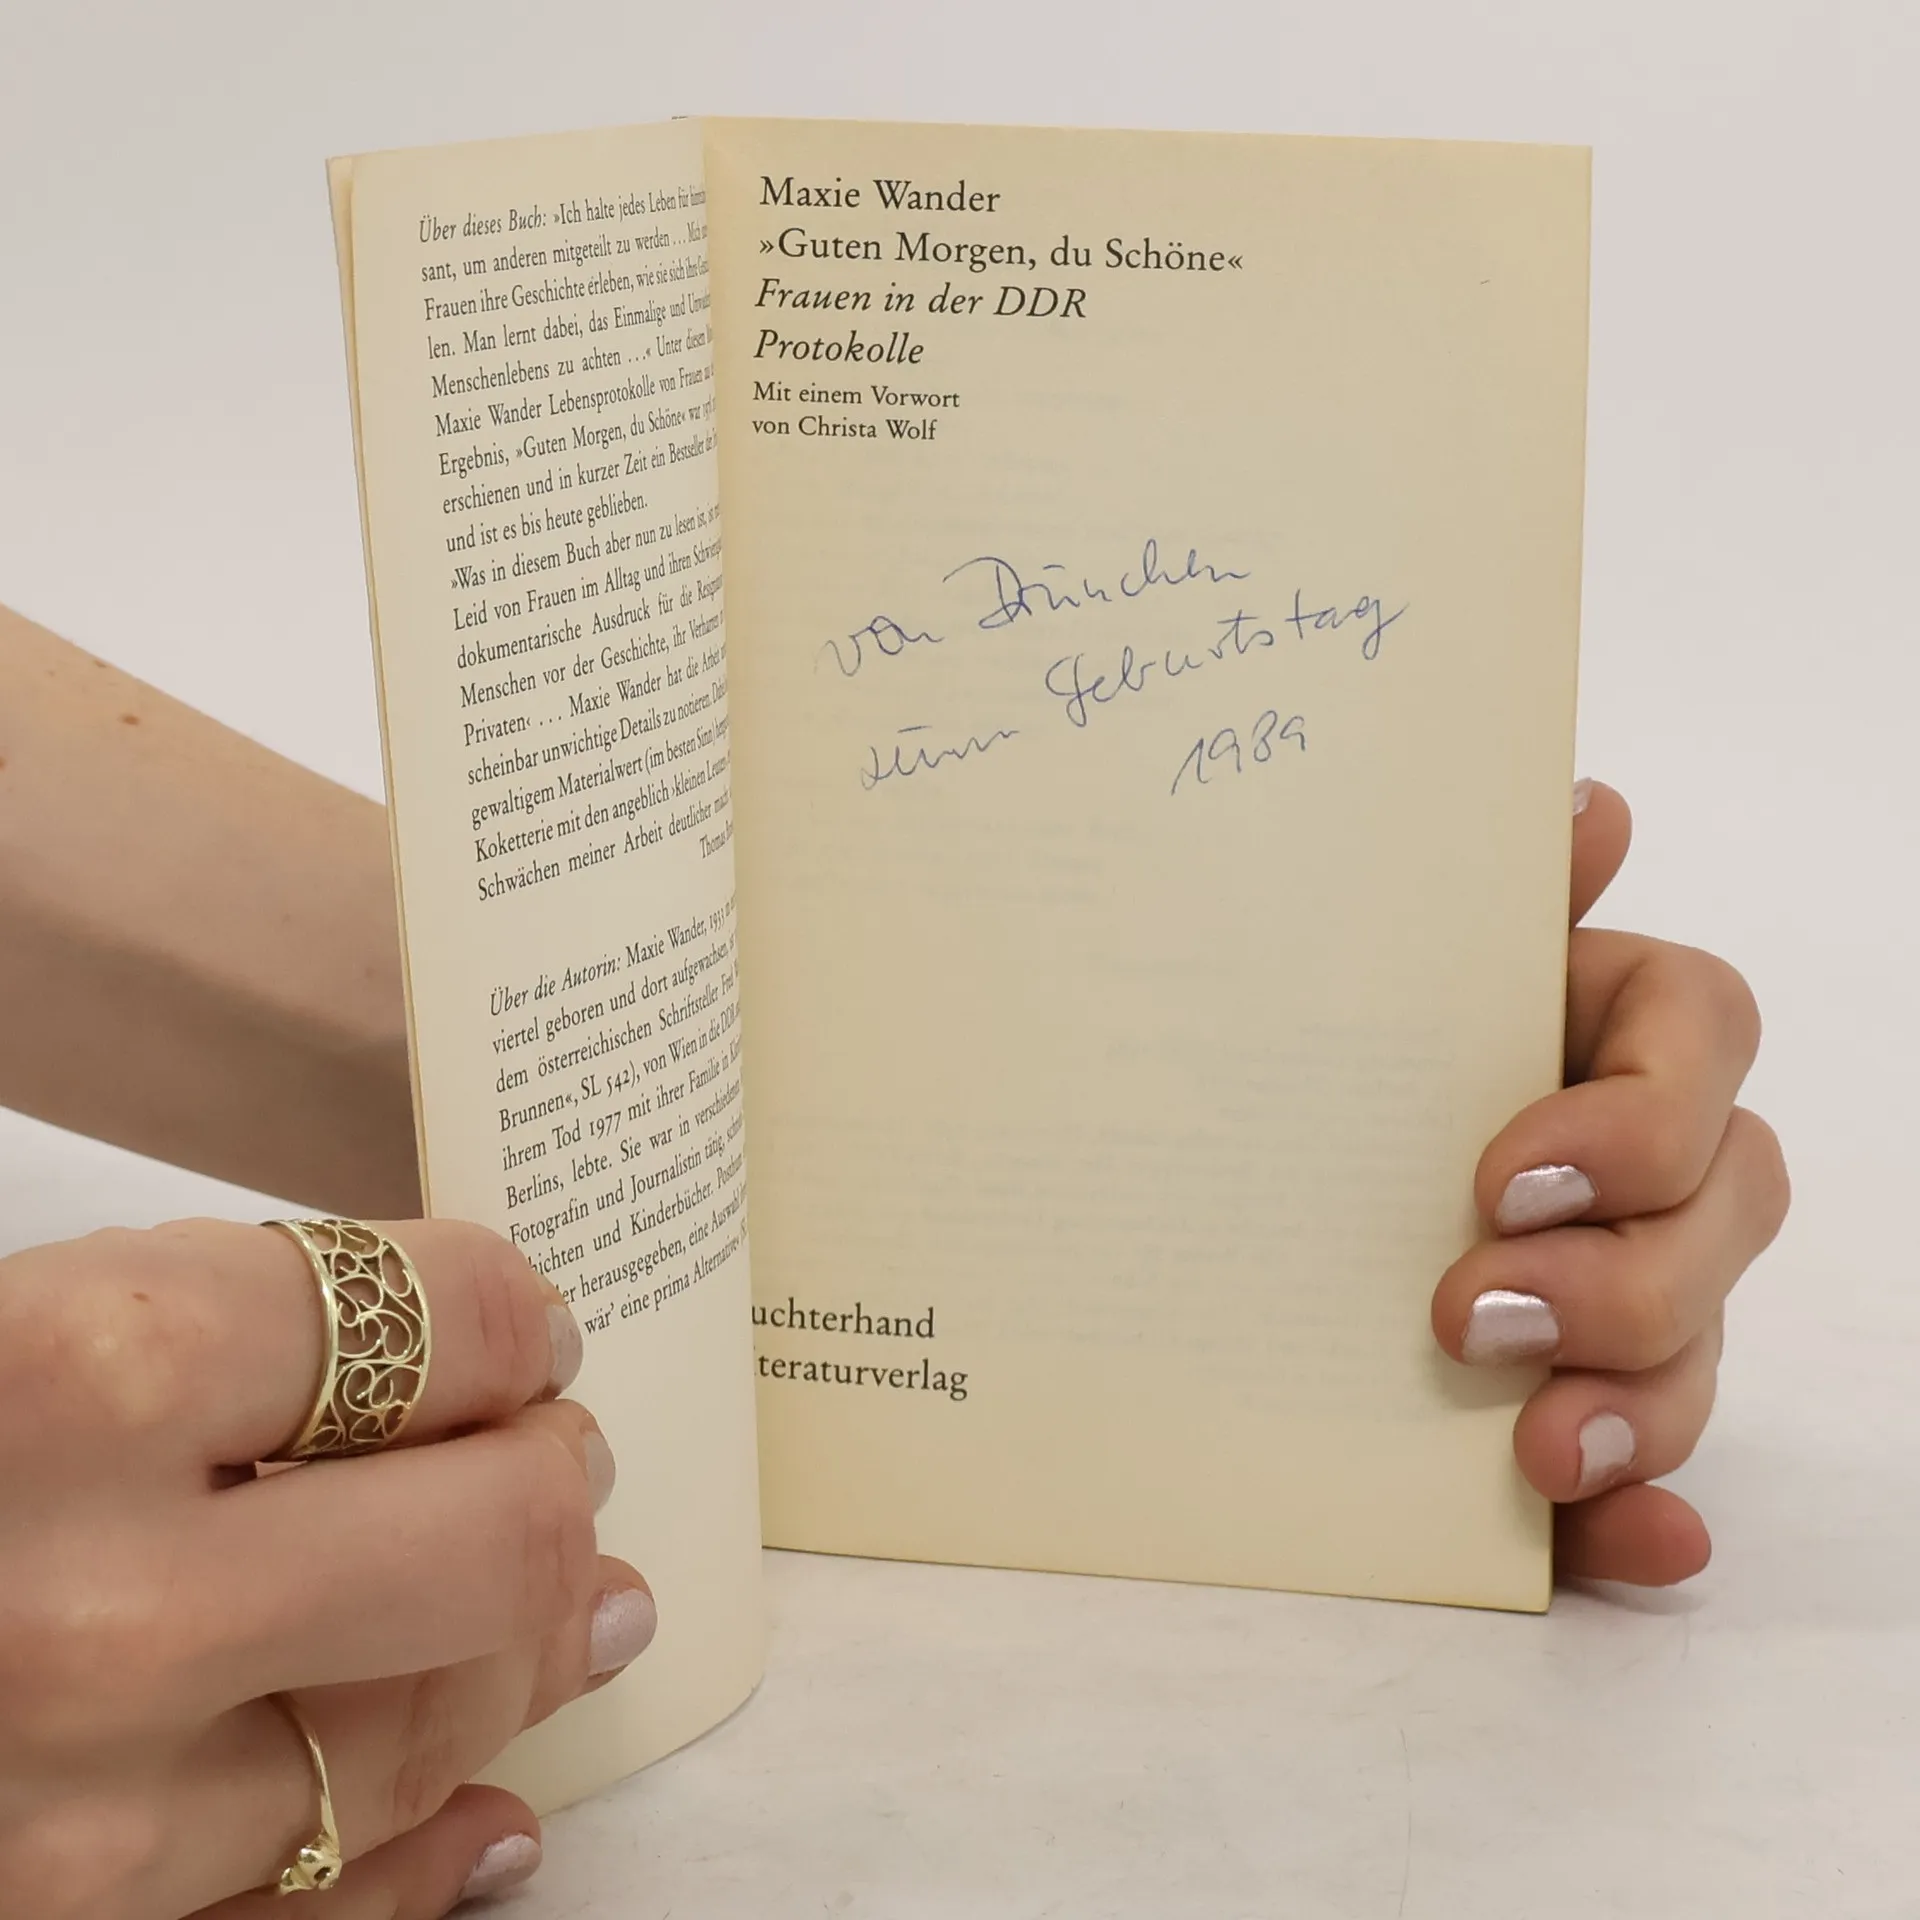 Über dieses Buch: »Ich halte jedes Leben für
sant, um anderen mitgeteilt zu werden ... Mich
Frauen ihre Geschichte erleben, wie sie sich ihre
len. Man lernt dabei, das Einmalige und
Menschenlebens zu achten ...« Unter diesem
Maxie Wander Lebensprotokolle von Frauen
Ergebnis, »Guten Morgen, du Schöne« war
erschienen und in kurzer Zeit ein Bestseller
und ist es bis heute geblieben.
»Was in diesem Buch aber nun zu lesen ist, ist
Leid von Frauen im Alltag und ihren
dokumentarische Ausdruck für die
Menschen vor der Geschichte, ihr Verharren
Privaten‹ ... Maxie Wander hat die Arbeit
scheinbar unwichtige Details zu notieren.
gewaltigem Materialwert (im besten Sinn)
Koketterie mit den angeblich ›kleinen Leuten
Schwächen meiner Arbeit deutlicher macht
Thomas
Über die Autorin: Maxie Wander, 1933 in
viertel geboren und dort aufgewachsen, ist
dem österreichischen Schriftsteller Fred
Brunnen«, SL 542), von Wien in die DDR
ihrem Tod 1977 mit ihrer Familie in
Berlins, lebte. Sie war in verschiedenen
Fotografin und Journalistin tätig,
hichten und Kinderbücher. Posthum
er herausgegeben, eine Auswahl
wär' eine prima Alternative«
Maxie Wander
»Guten Morgen, du Schöne«
Frauen in der DDR
Protokolle
Mit einem Vorwort
von Christa Wolf
von
zum Geburtstag
1989
uchterhand
iteraturverlag